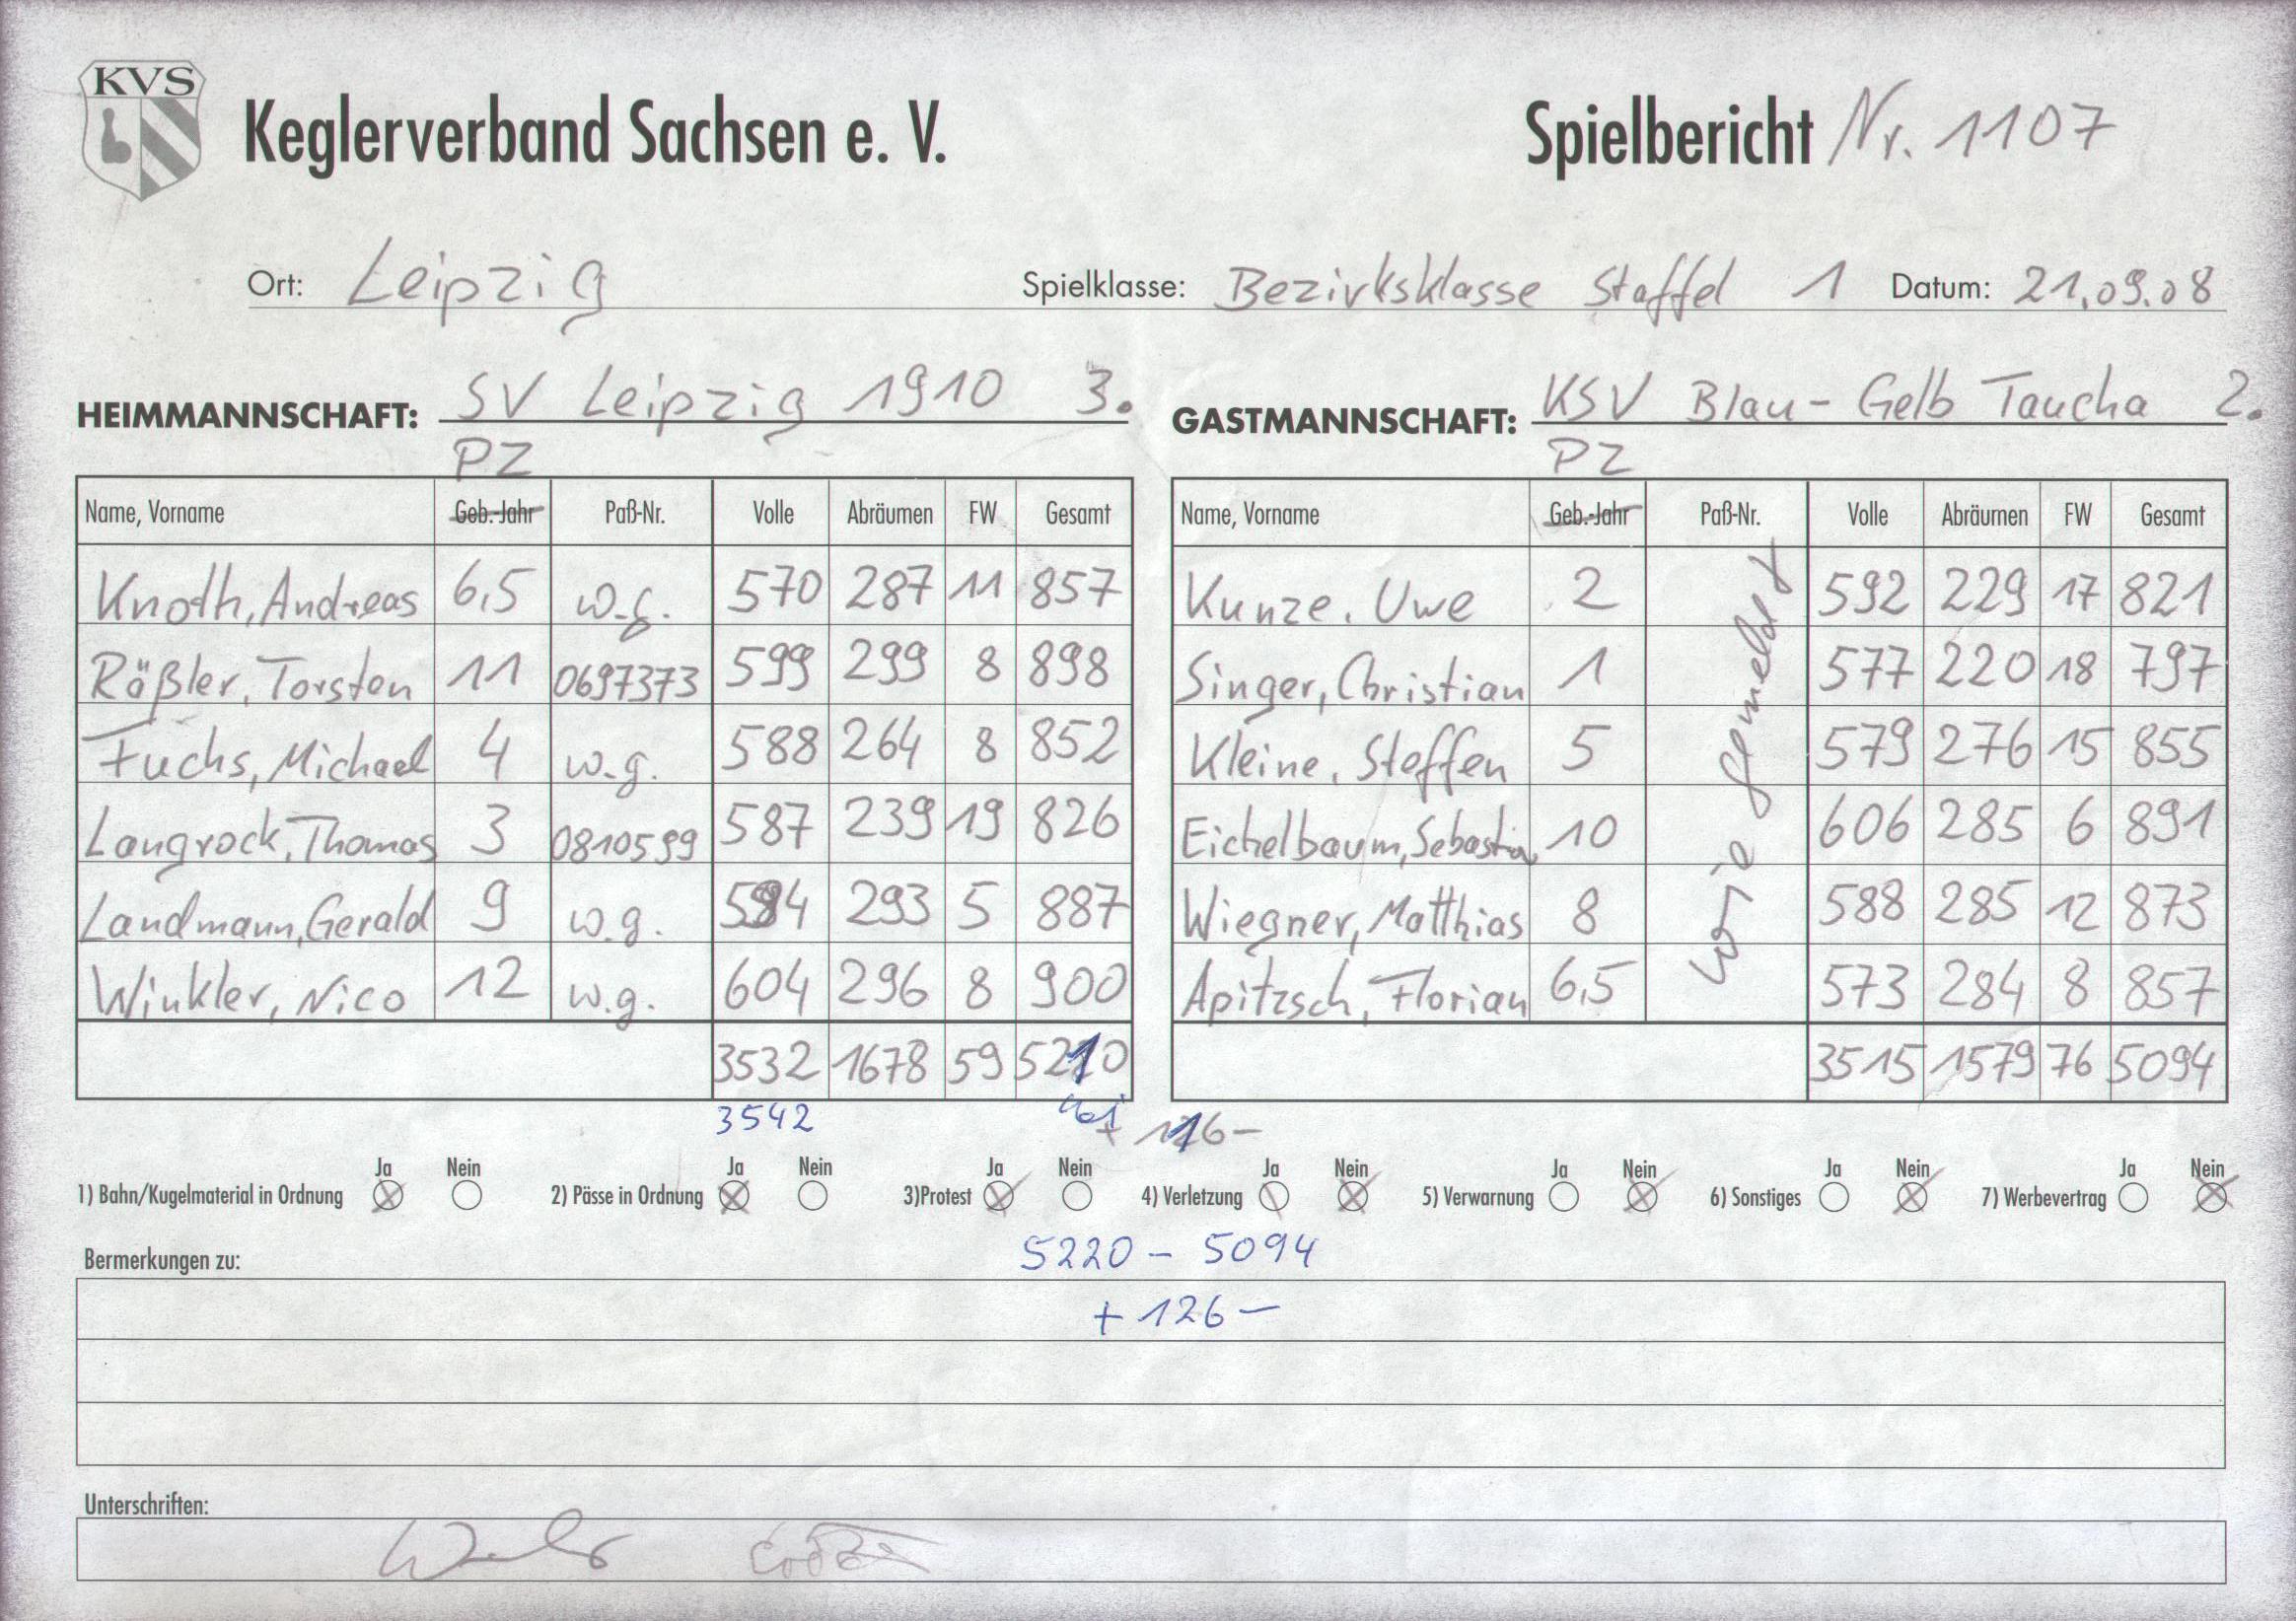 KVS
Keglerverband Sachsen e. V.
Spielbericht Nr. 1107
Ort: Leipzig Spielklasse: Bezirksklasse Staffel 1 Datum: 21.09.08
HEIMMANNSCHAFT: SV Leipzig 1910 3. GASTMANNSCHAFT: KSV Blau-Gelb Taucha 2.
PZ PZ
Name, Vorname Geb.-Jahr Paß-Nr. Volle Abräumen FW Gesamt Name, Vorname Geb.-Jahr Paß-Nr. Volle Abräumen FW Gesamt
Knoth, Andreas 6,5 w.g. 570 287 11 857 Kunze, Uwe 2 592 229 17 821
Räßler, Torsten 11 0697373 599 299 8 898 Singer, Christian 1 577 220 18 797
Fuchs, Michael 4 w.g. 588 264 8 852 Kleine, Steffen 5 579 276 15 855
Langrock, Thomas 3 0810599 587 239 19 826 Eichelbaum, Sebastian 10 606 285 6 891
Landmann, Gerald 9 w.g. 594 293 5 887 Wiegner, Matthias 8 588 285 12 873
Winkler, Nico 12 w.g. 604 296 8 900 Apitzsch, Florian 6,5 573 284 8 857
wie gemeldet
3532 1678 59 5210 3515 1579 76 5094
3542
+ 116 -
1) Bahn/Kugelmaterial in Ordnung Ja Nein 2) Pässe in Ordnung Ja Nein 3)Protest Ja Nein 4) Verletzung Ja Nein 5) Verwarnung Ja Nein 6) Sonstiges Ja Nein 7) Werbevertrag Ja Nein
5220 - 5094
Bermerkungen zu:
+ 126 -
Unterschriften: